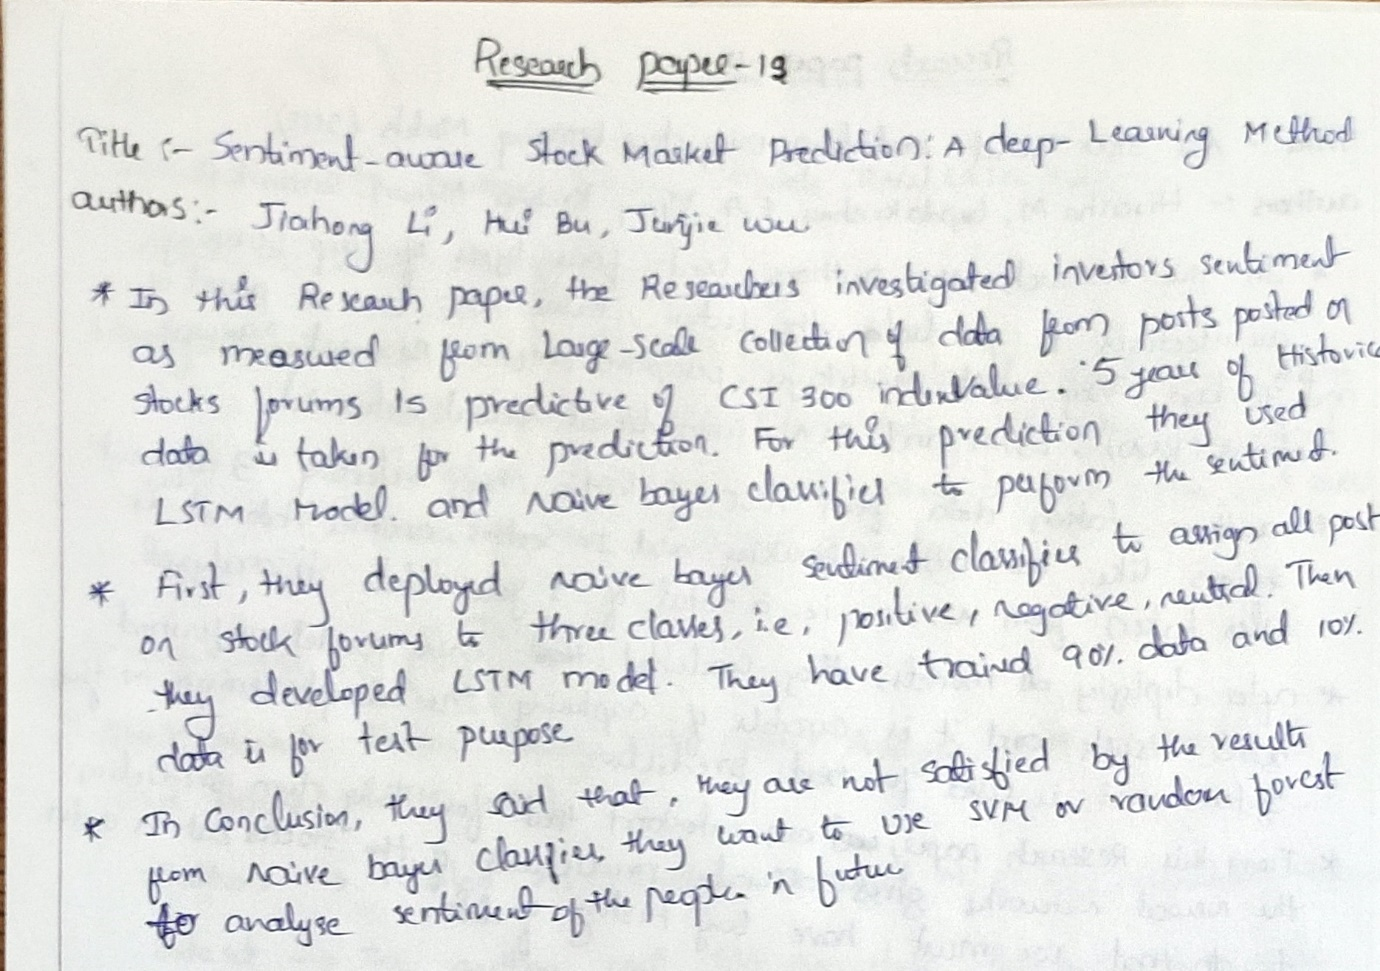 Research paper-19
Title :- Sentiment-aware Stock Market Prediction: A deep-Learning Method
authors:- Jiahong Li, Hui Bu, Junjie Wu
* In this Research paper, the Researchers investigated investors sentiment
as measured from large-scale collection of data from posts posted on
stocks forums is predictive of CSI 300 index value. 5 years of Historic
data is taken for the prediction. For this prediction they used
LSTM Model. and naive bayes classifier to perform the sentiment.
* First, they deployed naive bayes sentiment classifier to assign all post
on stock forums to three classes, i.e, positive, negative, neutral. Then
they developed LSTM model. They have trained 90% data and 10%
data is for test purpose
* In Conclusion, they said that, they are not satisfied by the results
from naive bayes classifier, they want to use SVM or random forest
to analyse sentiment of the people in future